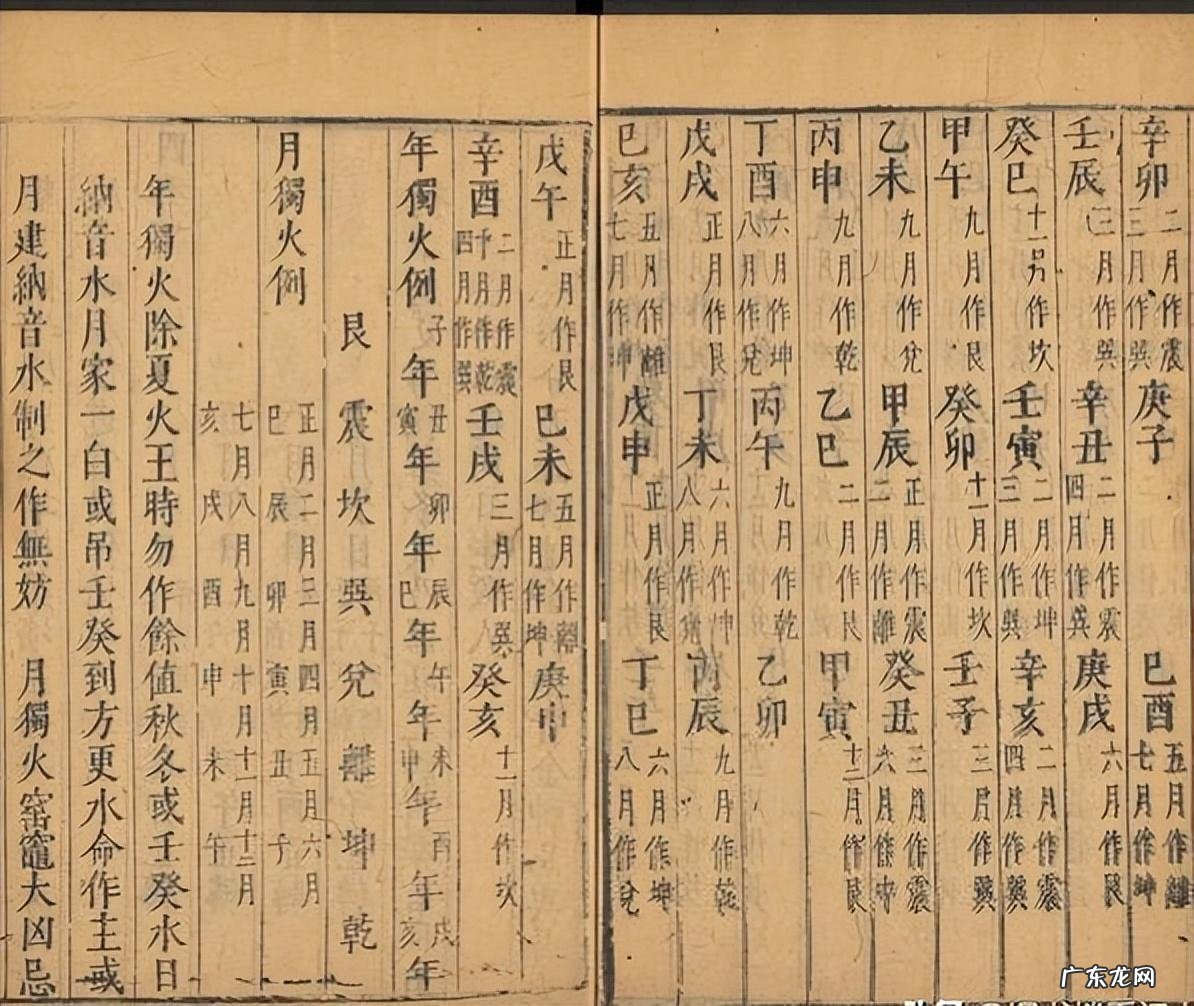 辛卯 二月作震 三月作巽 庚子 巳酉 五月作離 七月作坤
壬辰 三月作巽 辛丑 二月作震 四月作巽 庚戌 六月作艮
癸巳 十一月作坎 壬寅 二月作坤 三月作巽 辛亥 二月作震 四月作巽
甲午 九月作艮 癸卯 十一月作坎 壬子 三月作巽
乙未 九月作兌 甲辰 正月作震 二月作離 癸丑 三月作震 六月作中
丙申 九月作乾 乙巳 二月作艮 甲寅 十二月作艮
丁酉 六月作坤 八月作兌 丙午 九月作乾 乙卯
戊戌 正月作艮 丁未 六月作坤 八月作 丙辰 九月作乾
巳亥 五月作離 七月作坤 戊申 正月作艮 丁巳 六月作坤 八月作兌
戊午 正月作艮 巳未 五月作離 七月作坤 庚申
辛酉 二月作震 十月作乾 四月作巽 壬戌 三月作巽 癸亥 十一月作坎
年獨火例 子年 丑寅年 卯年 辰巳年 午年 未申年 酉年 戌亥年
艮 震 坎 巽 兌 離 坤 乾
月獨火例 正月 二月 三月 四月 五月 六月
巳 辰 卯 寅 丑 子
七月 八月 九月 十月 十一月 十二月
亥 戌 酉 申 未 午
年獨火除夏火王時勿作餘值秋冬或壬癸水日
納音水月家一白或吊壬癸到方更水命作主或
月建納音水制之作無妨 月獨火窑竈大凶忌
广东龙网